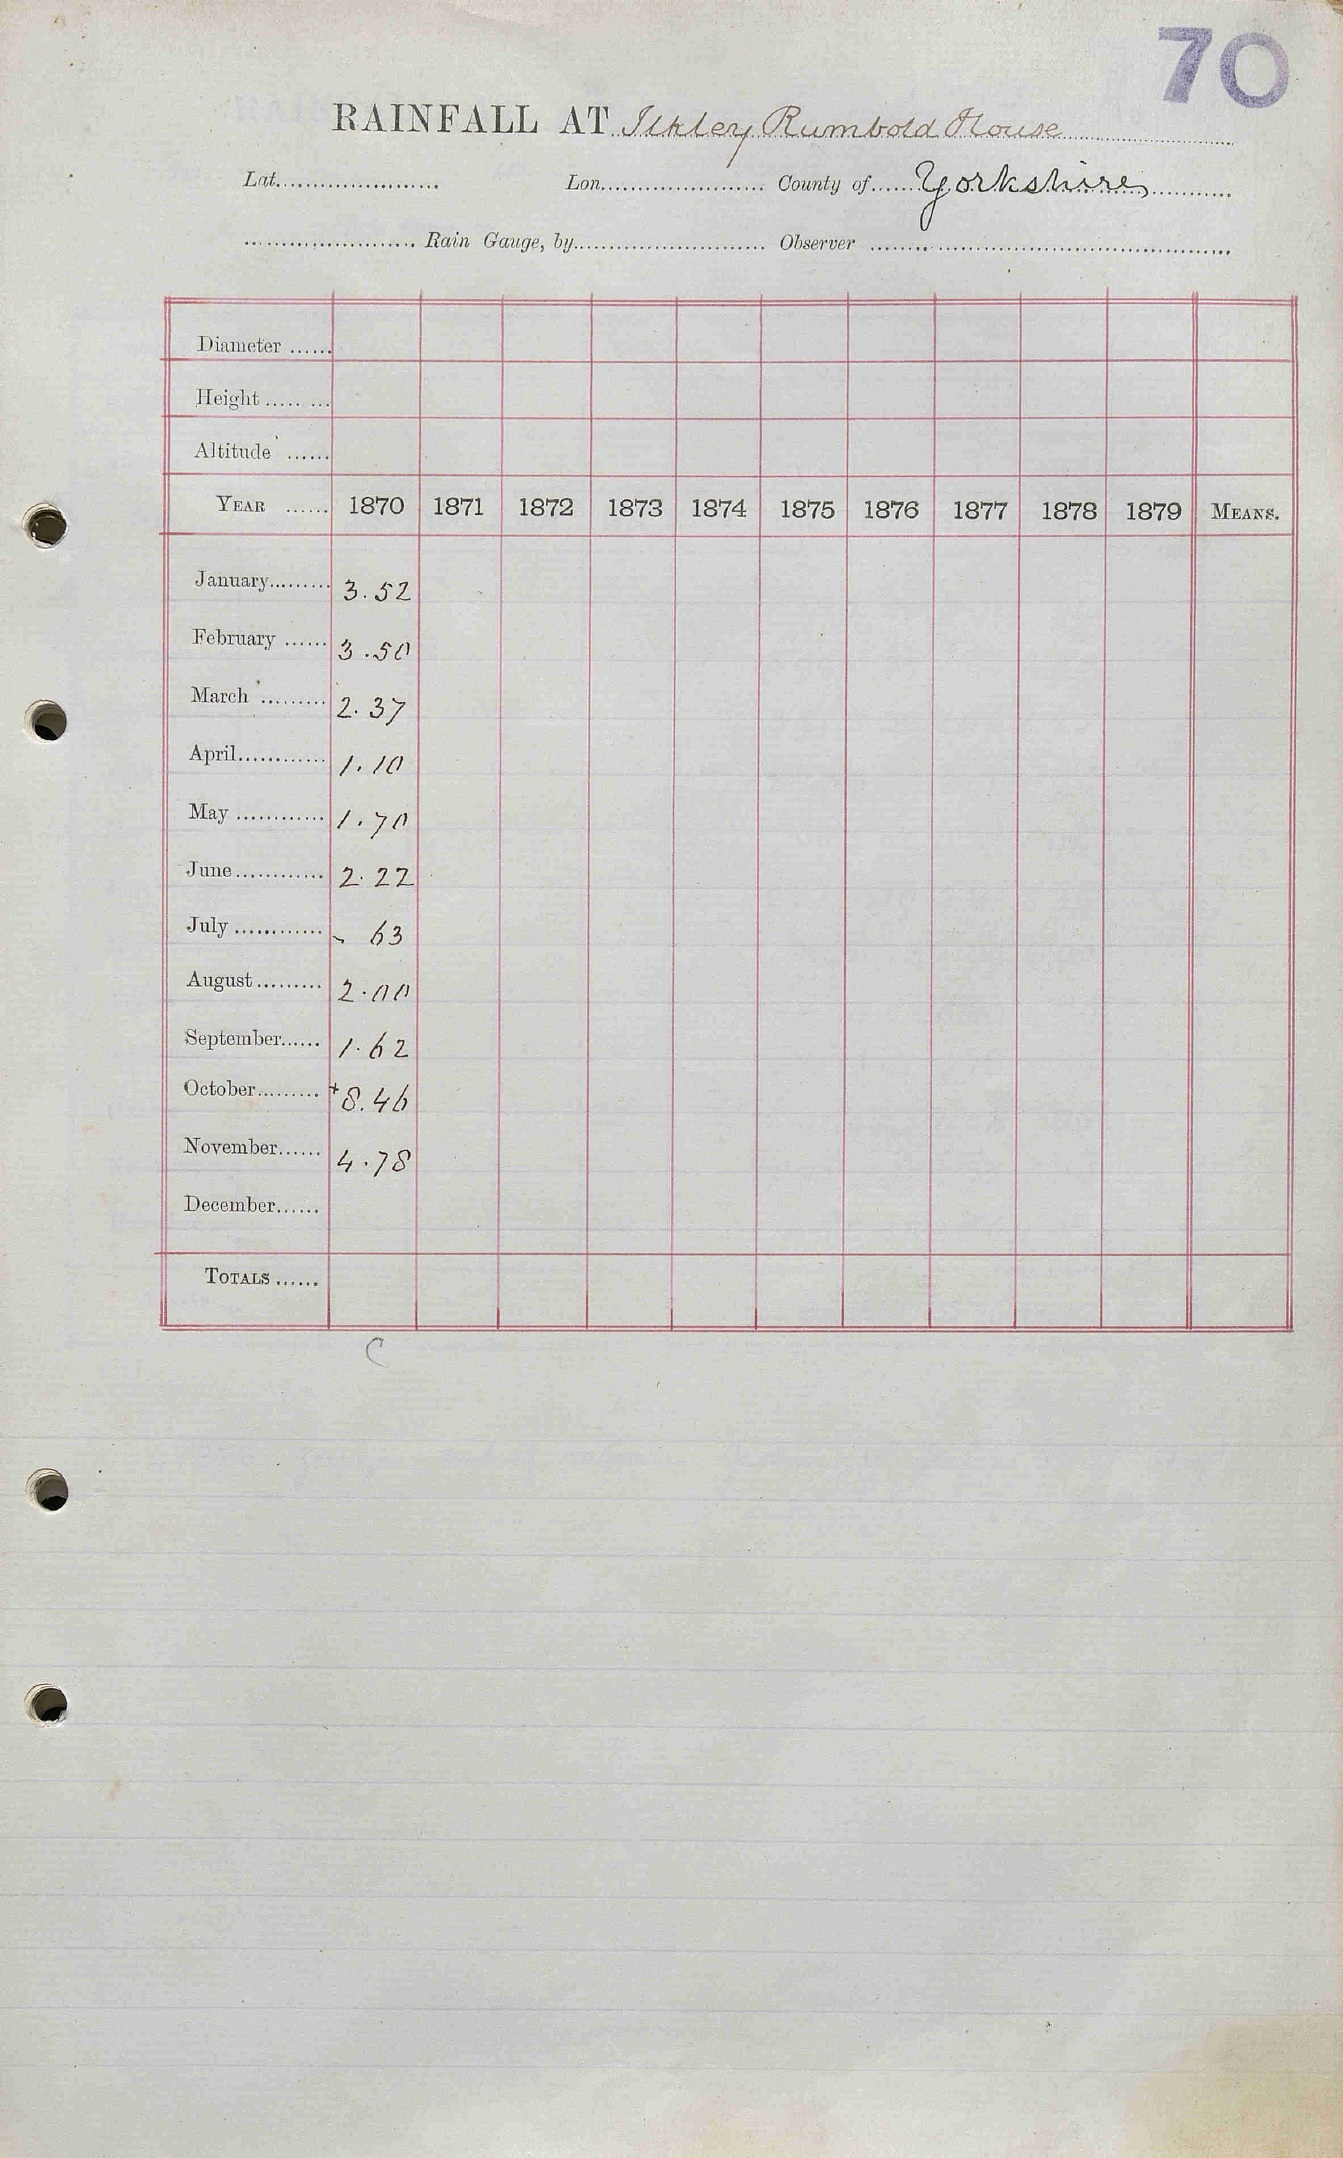 70
RAINFALL AT Ilkley Rumbold House
Lat. Lon. County of Yorkshire
Rain Gauge, by Observer
Diameter
Height
Altitude
YEAR 1870 1871 1872 1873 1874 1875 1876 1877 1878 1879 MEANS.
January 3.52
February 3.50
March 2.37
April 1.10
May 1.70
June 2.22
July - 63
August 2.00
September 1.62
October +8.46
November 4.78
December
TOTALS
C